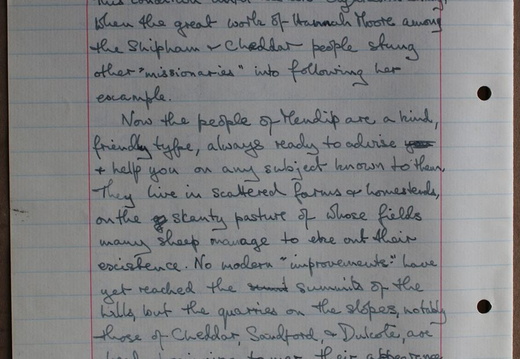 when the great work of Hannah Moore among
the Shipham & Cheddar people stung
other "missionaries" into following her
example.
Now the people of Mendip are a kind,
friendly type, always ready to advise
& help you on any subject known to them.
They live in scattered farms & homesteads,
on the skanty pasture of whose fields
many sheep manage to eke out their
existence. No modern "improvements" have
yet reached the summits of the
hills, but the quarries on the slopes, notably
those of Cheddar, Sandford, & Dulcote, are
their appearance